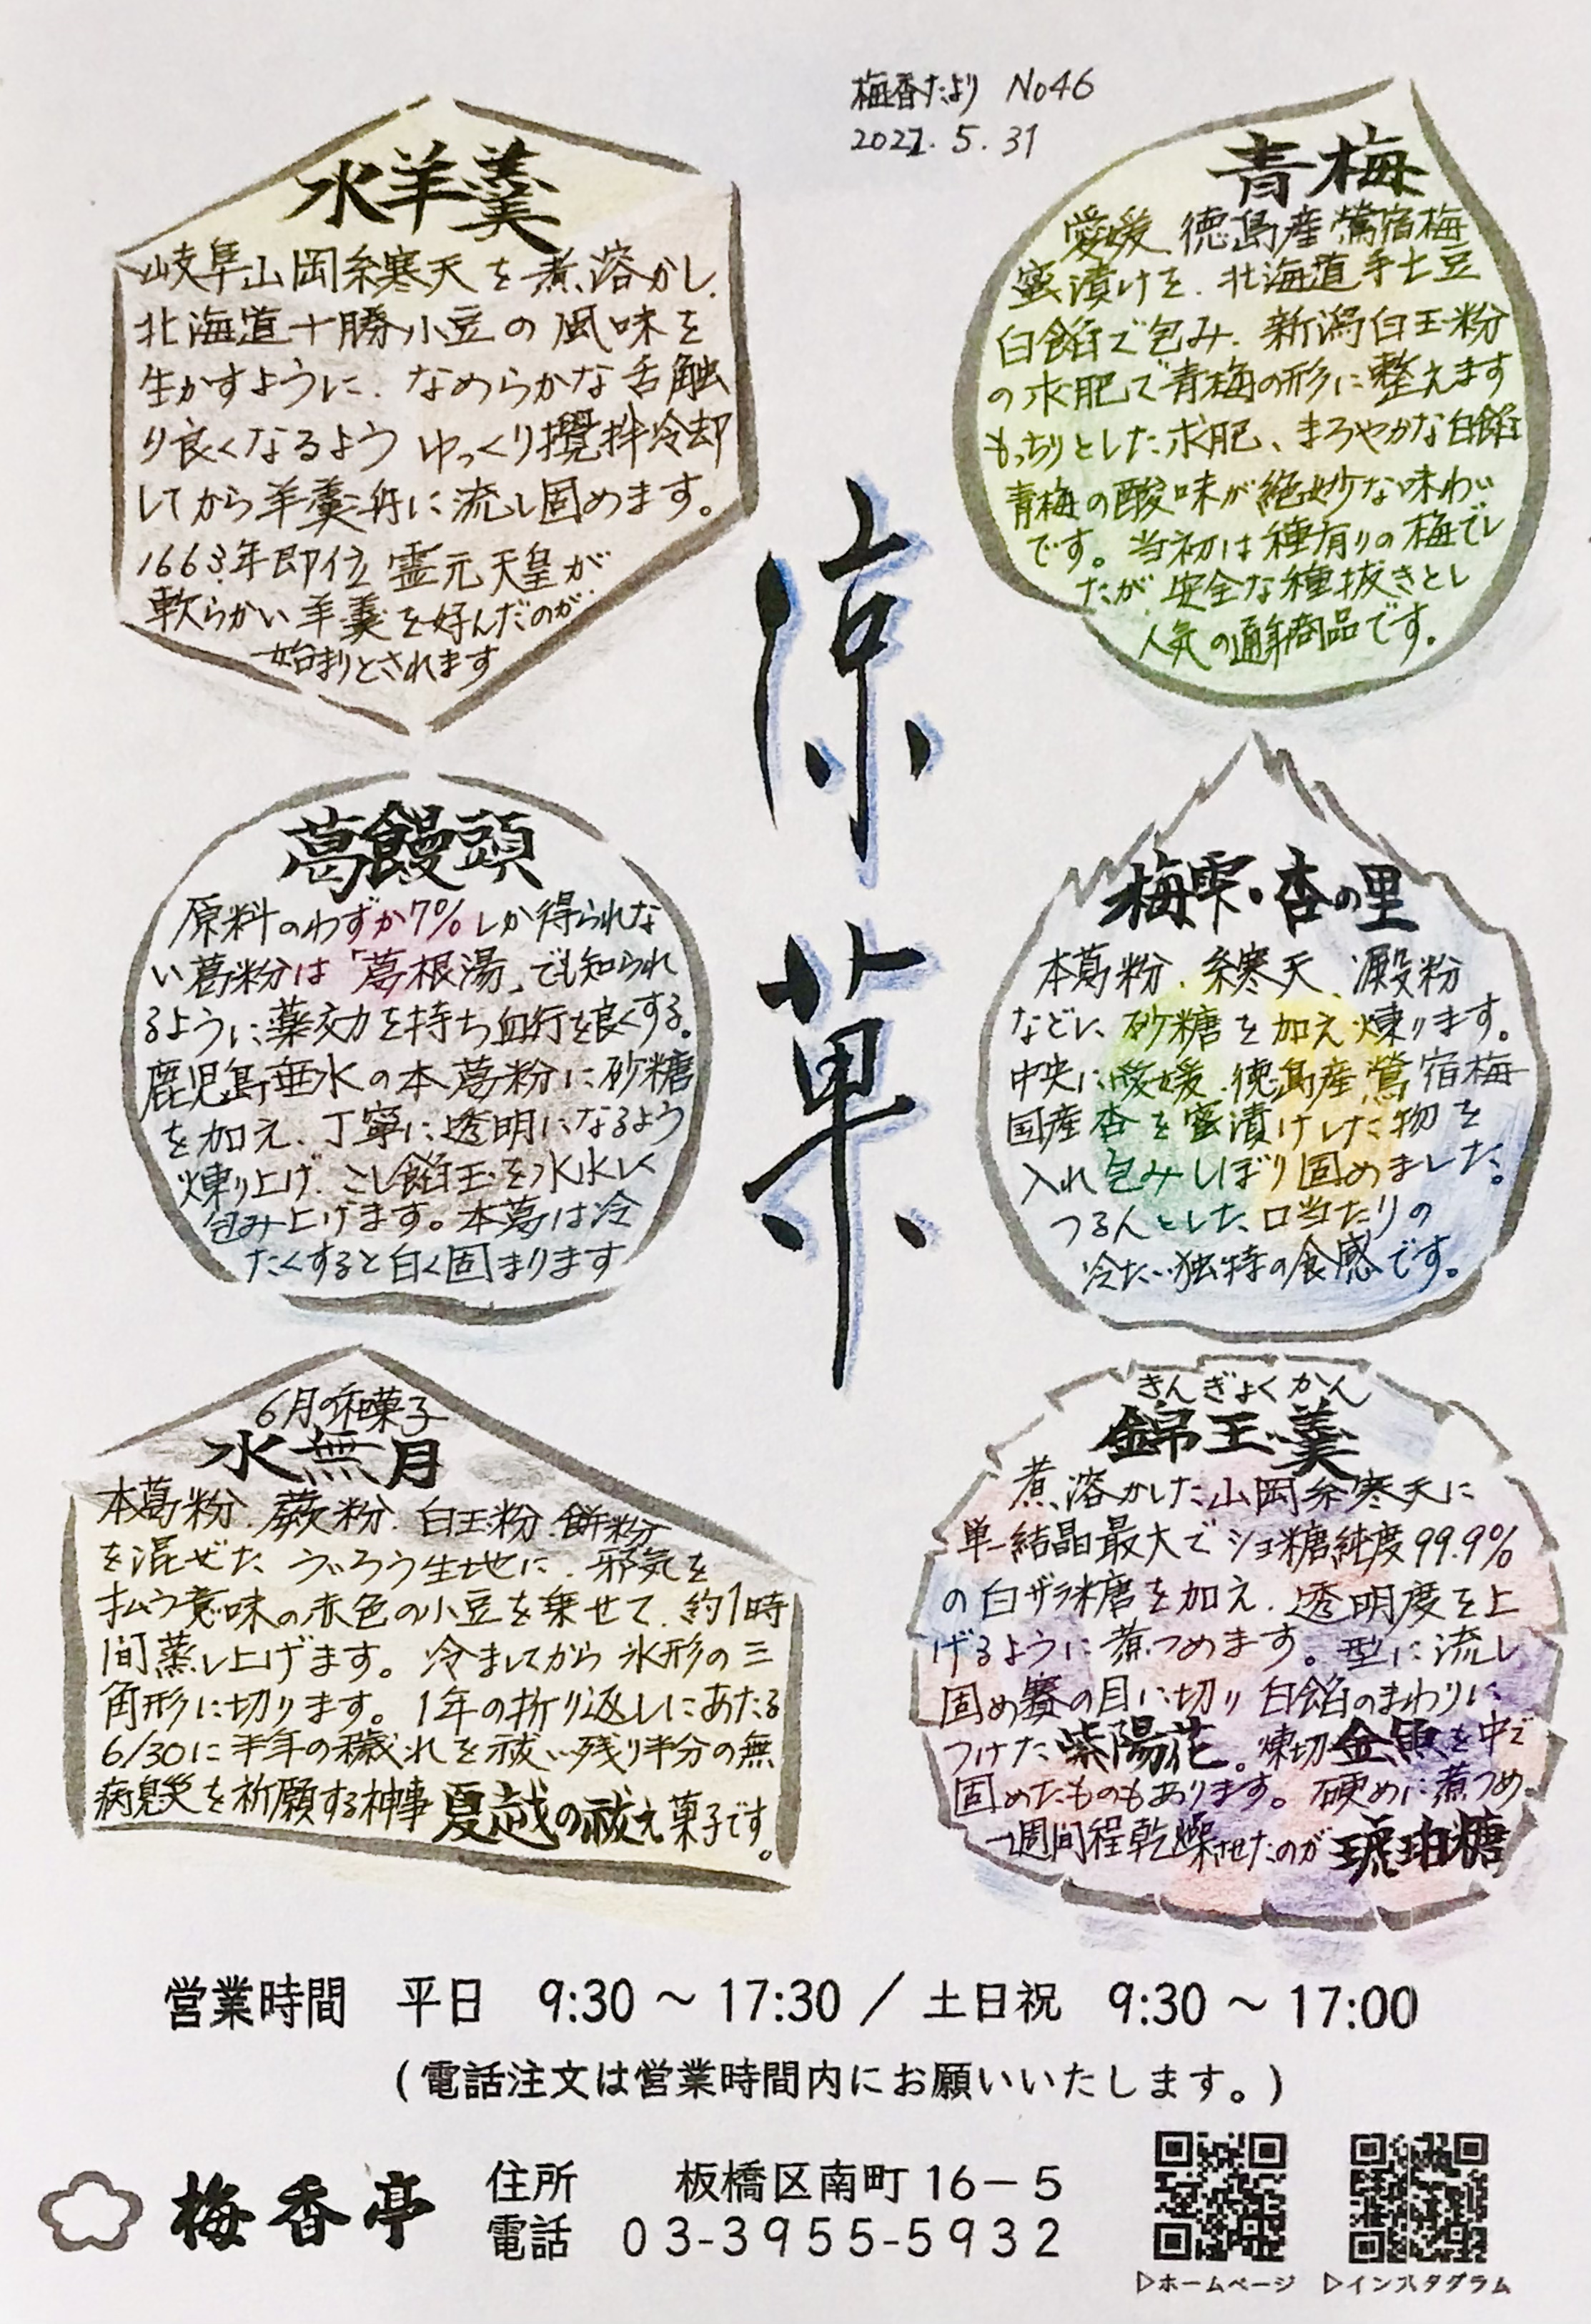 梅香だより No46
2021.5.31
涼菓
水羊羹
岐阜山岡糸寒天を煮溶かし、
北海道十勝小豆の風味を
生かすように、なめらかな舌触
り良くなるようゆっくり攪拌冷却
してから羊羹舟に流し固めます。
1663年即位霊元天皇が
軟らかい羊羹を好んだのが
始まりとされます
青梅
愛媛、徳島産鶯宿梅
蜜漬けを、北海道手亡豆
白餡で包み、新潟白玉粉
の求肥で青梅の形に整えます
もっちりとした求肥、まろやかな白餡
青梅の酸味が絶妙な味わい
です。当初は種有りの梅でし
たが、安全な種抜きとし
人気の通年商品です。
葛饅頭
原料のわずか7%しか得られな
い葛粉は「葛根湯」でも知られ
るように薬効力を持ち血行を良くする。
鹿児島垂水の本葛粉に砂糖
を加え、丁寧に透明になるよう
煉り上げ、こし餡玉を水水しく
包み上げます。本葛は冷
たくすると白く固まります
梅雫・杏の里
本葛粉、糸寒天、澱粉
などに、砂糖を加え煉ります。
中央に愛媛、徳島産鶯宿梅
国産杏を蜜漬けした物を
入れ包みしぼり固めました。
つるんとした、口当たりの
冷たい独特の食感です。
6月の和菓子
水無月
本葛粉、蕨粉、白玉粉、餅粉
を混ぜた、ういろう生地に、邪気を
払う意味の赤色の小豆を乗せて、約1時
間蒸し上げます。冷ましてから氷形の三
角形に切ります。1年の折り返しにあたる
6/30に半年の穢れを祓い残り半分の無
病息災を祈願する神事夏越の祓え菓子です。
きんぎょくかん
錦玉羹
煮溶かした山岡糸寒天に
単一結晶最大でショ糖純度99.9%
の白ザラ糖を加え、透明度を上
げるように煮つめます。型に流し
固め賽の目に切り白餡のまわりに
つけた紫陽花。煉切金魚を中で
固めたものもあります。硬めに煮つめ、
一週間程乾燥させたのが琥珀糖
営業時間 平日 9:30 ～ 17:30 / 土日祝 9:30 ～ 17:00
(電話注文は営業時間内にお願いいたします。)
梅香亭
住所 板橋区南町16－5
電話 03-3955-5932
▷ホームページ ▷インスタグラム